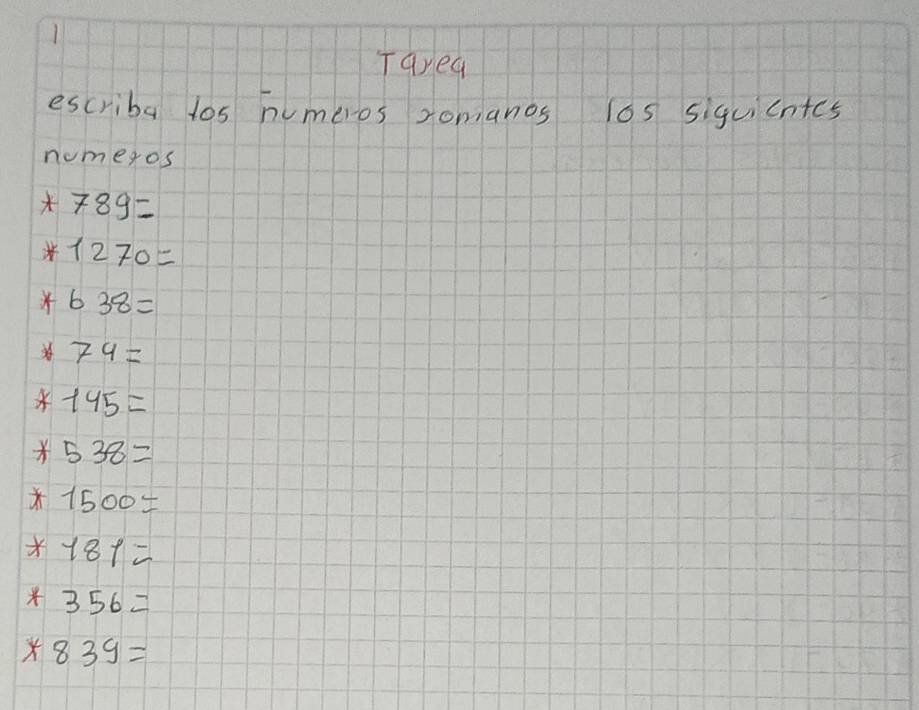 1
Tarea
escriba los numeros romanos los siguientes
numeros
* 789=
* 1270=
* 638=
* 74=
* 145=
* 538=
* 1500=
* 181=
* 356=
* 839=